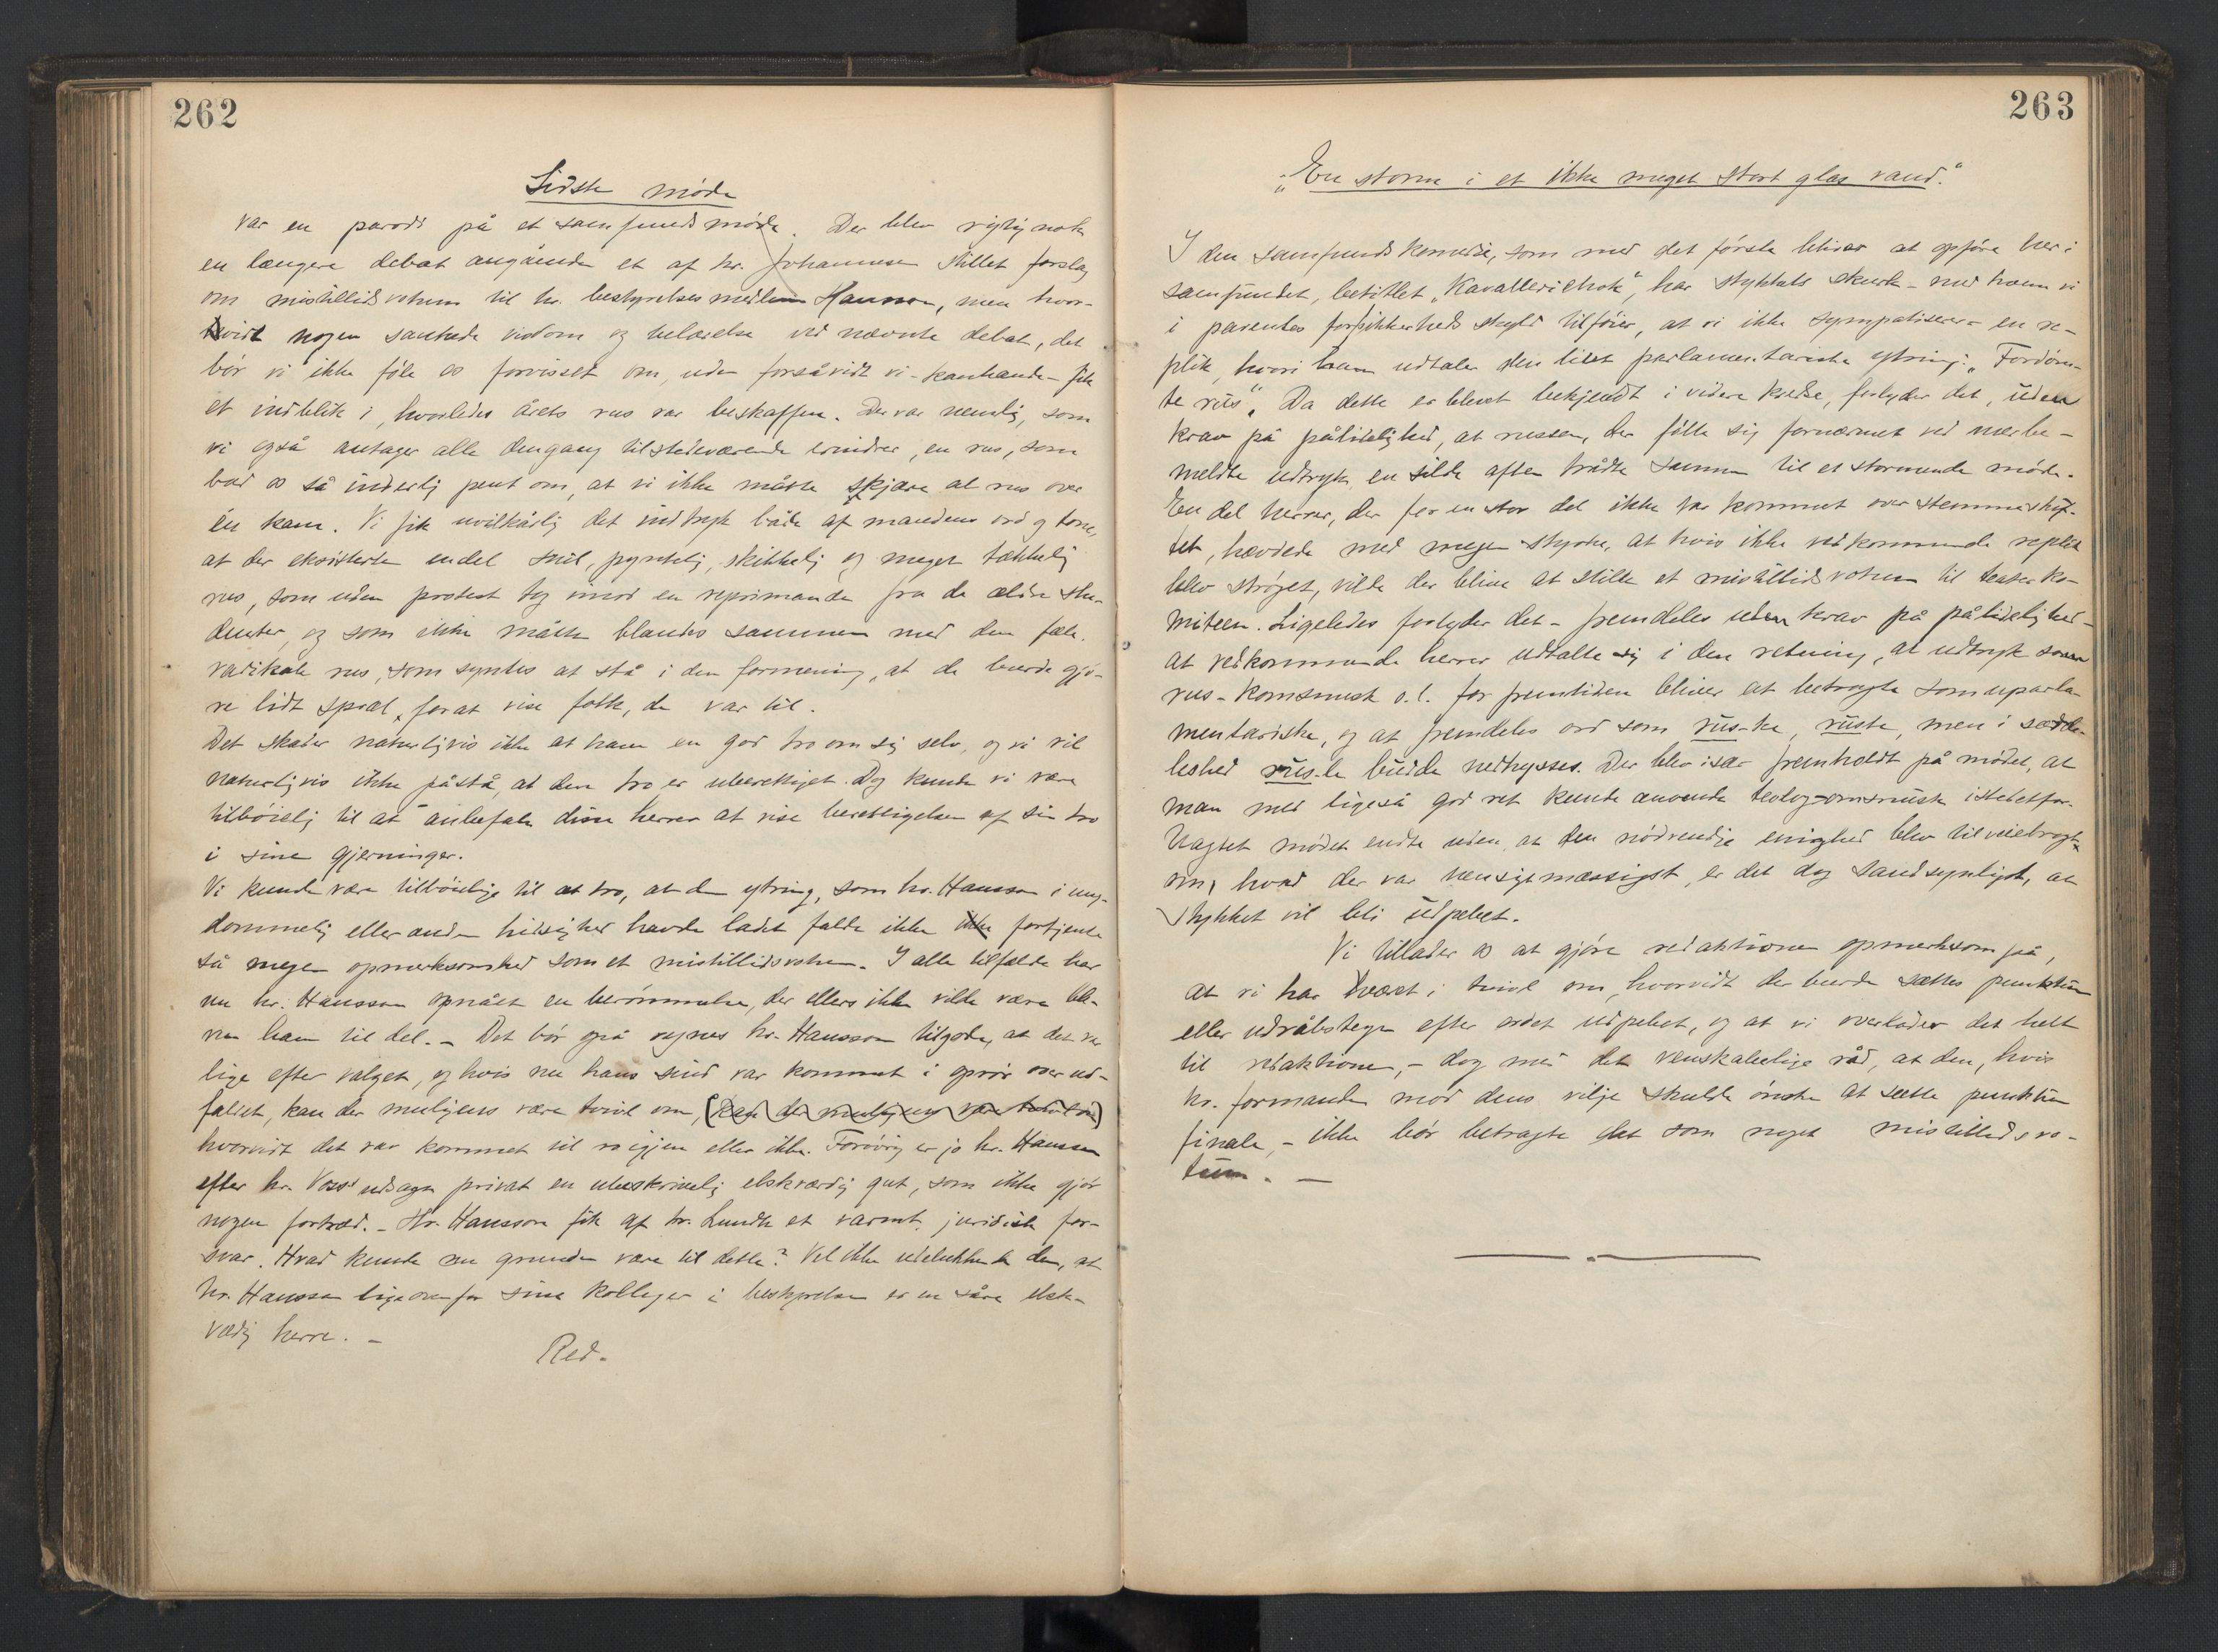 262
Sidste møde
var en parodi på et samfundsmøde. Der blev rigtignok
en længere debat angående et af hr. Johannesen stillet forslag
om mistillidsvotum til hr. bestyrelsesmedlem Hansson, men hvor-
vidt nogen sankede visdom og belærelse ved nævnte debat, det
bør vi ikke føle os forvisset om, uden forsåvidt vi - kanhænde - fik
et indblik i, hvorledes årets rus var beskaffen. Der var nemlig, som
vi også antager alle dengang tilstedeværende erindrer, en rus, som
bad os så inderlig pent om, at vi ikke måtte skjære al rus over
én kam. Vi fik uvilkårlig det indtryk både af mandens ord og tone,
at der eksisterte endel snil, pyntelig, skikkelig og meget tækkelig
rus, som uden protest tog imod en reprimande fra de ældre stu-
denter, og som ikke måtte blandes sammen med den fæle,
radikale rus, som syntes at stå i den formening, at de burde gjø-
re lidt spræl, forat vise folk, de var til.
Det skader naturligvis ikke at have en god tro om sig selv, og vi vil
naturligvis ikke påstå, at den tro er uberettiget. Dog kunde vi være
tilbøielig til at anbefale disse herrer at vise berettigelsen af sin tro
i sine gjerninger.
Vi kunde være tilbøielige til at tro, at den ytring, som hr. Hansson i ung-
dommelig eller anden hidsighed havde ladet falde ikke ikke fortjente
så megen opmerksomhed som et mistillidsvotum. I alle tilfælde har
nu hr. Hansson opnået en berømmelse, der ellers ikke vilde være ble-
ven ham til del. - Det bør også regnes hr. Hansson tilgode, at det var
lige efter valget, og hvis nu hans sind var kommet i oprør over ud-
faldet, kan der muligens være tvivl om, (kan der muligens være tvivl om)
hvorvidt det var kommet til ro igjen eller ikke. Forøvrig er jo hr. Hansson
efter hr. Voss' udsagn privat en ubeskrivelig elskværdig gut, som ikke gjør
nogen fortræd. - Hr. Hansson fik af hr. Lundh et varmt, juridisk for-
svar. Hvad kunde nu grunden være til dette? Vel ikke udelukkende den, at
hr. Hansson ligeoverfor sine kolleger i bestyrelsen er en såre elsk-
værdig herre. -
Red.
263
"En storm i et ikke meget stort glas vand."
I den samfundskomedie, som med det første bliver at opføre her i
samfundet, betitlet "Kavallerichok", har stykkets skurk - med hvem vi
i parentes forsikkerheds skyld tilføier, at vi ikke sympatiserer - en re-
plik, hvori han udtaler den lidet parlamentariske ytring: "Fordøm-
te rus". Da dette er blevet bekjendt i videre kredse, forlyder det, uden
krav på pålidelighed, at russen, der følte sig fornærmet ved nærbe-
meldte udtryk, en silde aften trådte sammen til et stormende møde.
En del herrer, der for en stor del ikke har kommet over stemmeskif-
tet, hævdede med megen styrke, at hvis ikke vedkommende replik
blev strøget, vilde der blive at stille et mistillidsvotum til teaterko-
miteen. Ligeledes forlyder det - fremdeles uden krav på pålidelighed -
at vedkommende herrer udtalte sig i den retning, at udtryk som
rus-komsnusk o.l. for fremtiden bliver at betragte som uparla-
mentariske, og at fremdeles ord som rus-ke, ruste, men i særde-
leshed rus-le burde nedhysses. Der blev især fremholdt på mødet, at
man med ligeså god ret kunde anvende teolog-omsnusk istedetfor.
Uagtet mødet endte uden, at den nødvendige enighed blev tilveiebragt
om, hvad der var hensigtmæssigst, er det dog sandsynligst, at
stykket vil bli udpebet.
Vi tillader os at gjøre redaktionen opmerksom på,
at vi har været i tvivl om, hvorvidt der burde sættes punktum
eller udråbstegn efter ordet udpebet, og at vi overlader det helt
til redaktionen, - dog med det venskabelige råd, at den, hvis
hr. formanden mod dens vilje skulde ønske at sætte punktum
finale, - ikke bør betragte det som noget mistillidsvo-
tum. -